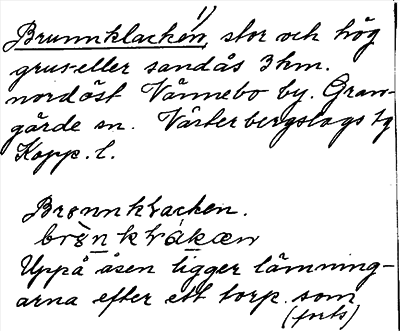 1)
Brunnklacken, stor och hög
grus-eller sandås 3 km.
nordöst Vännebo by. Gran-
gärde sn. Västerbergslags tg
Kopp. l.
Brønnkƚacken.
Uppå åsen ligger lämning-
arna efter ett torp. som
(forts)